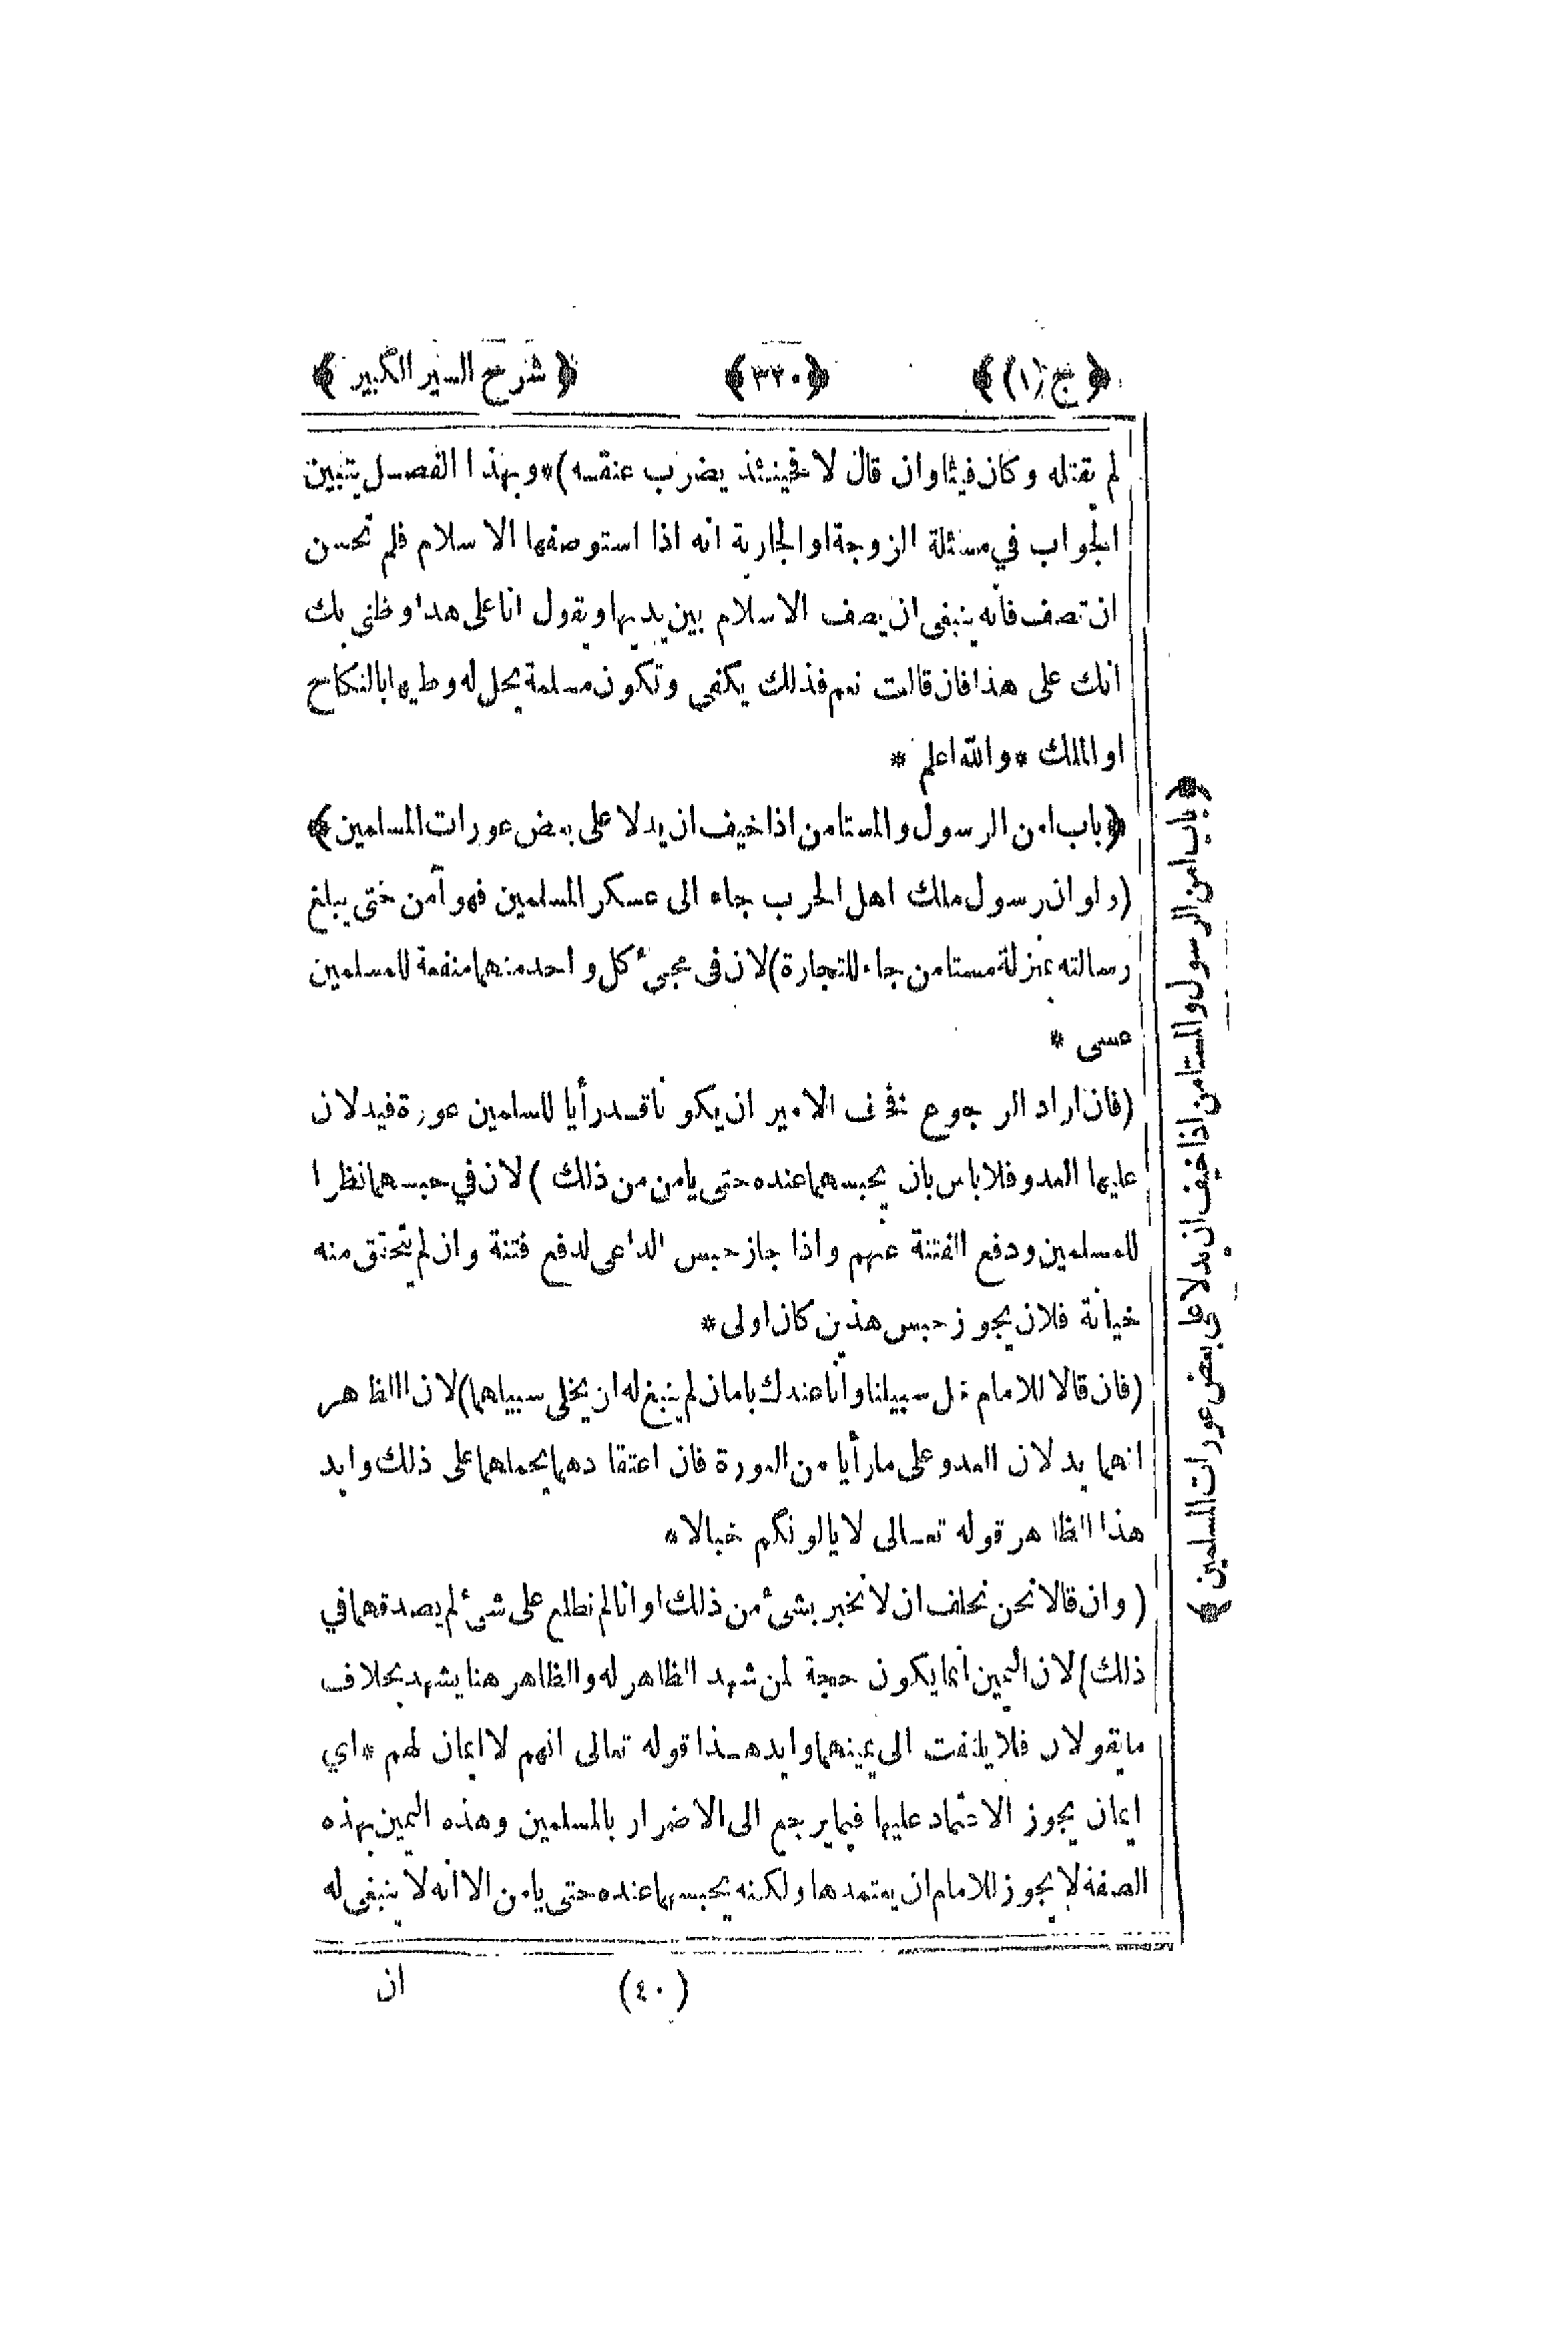 ﴿ ج (١) ﴾ ﴿ ٣٢٠ ﴾ ﴿ شرح السير الكبير ﴾
لم يقتله وكان فيئا وان قال لا فحينئذ يضرب عنقه)*وبهذا الفصل يتبين
الجواب في مسئلة الزوجة او الجارية انه اذا استوصفها الاسلام فلم تحسن
ان تصف فانه ينبغى ان يصف الاسلام بين يديها ويقول انا على هذا وظني بك
انك على هذا فان قالت نعم فذلك يكفي وتكون مسلمة يحل له وطيها بالنكاح
او الملك *والله اعلم *
﴿باب امن الرسول والمستامن اذا خيف ان يدلا على بعض عورات المسلمين﴾
(ولو ان رسول ملك اهل الحرب جاء الى عسكر المسلمين فهو آمن حتى يبلغ
رسالته بمنزلة مستامن جاء للتجارة)لان فى مجئ كل واحد منهما منفعة للمسلمين
عسى *
(فان اراد الرجوع فخاف الامير ان يكونا قد رأيا للمسلمين عورة فيدلان
عليها العدو فلا باس بان يحبسهما عنده حتى يامن من ذلك )لان في حبسهما نظرا
للمسلمين ودفع الفتنة عنهم واذا جاز حبس الداعى لدفع فتنة وان لم يتحقق منه
خيانة فلان يجوز حبس هذين كان اولى*
(فان قالا للامام خل سبيلنا وانا عندك بامان لم ينبغ له ان يخلى سبيلهما)لان الظاهر
انهما يدلان العدو على ما رأيا من العورة فان اعتقادهما يحملهما على ذلك وايد
هذا الظاهر قوله تعالى لا يالونكم خبالا*
(وان قالا نحن نحلف ان لا نخبر بشئ من ذلك او انا لم نطلع على شئ لم يصدقهما في
ذلك)لان اليمين انما يكون حجة لمن شهد الظاهر له والظاهر هنا يشهد بخلاف
ما يقولان فلا يلتفت الى يمينهما وايد هذا قوله تعالى انهم لا ايمان لهم *اي
ايمان يجوز الاعتماد عليها فيما يرجع الى الاضرار بالمسلمين وهذه اليمين بهذه
الصفة لا يجوز للامام ان يعتمدها ولكنه يحبسهما عنده حتى يامن الا انه لا ينبغى له
(٤٠) ان
﴿باب امن الرسول والمستامن اذا خيف ان يدلا على بعض عورات المسلمين﴾